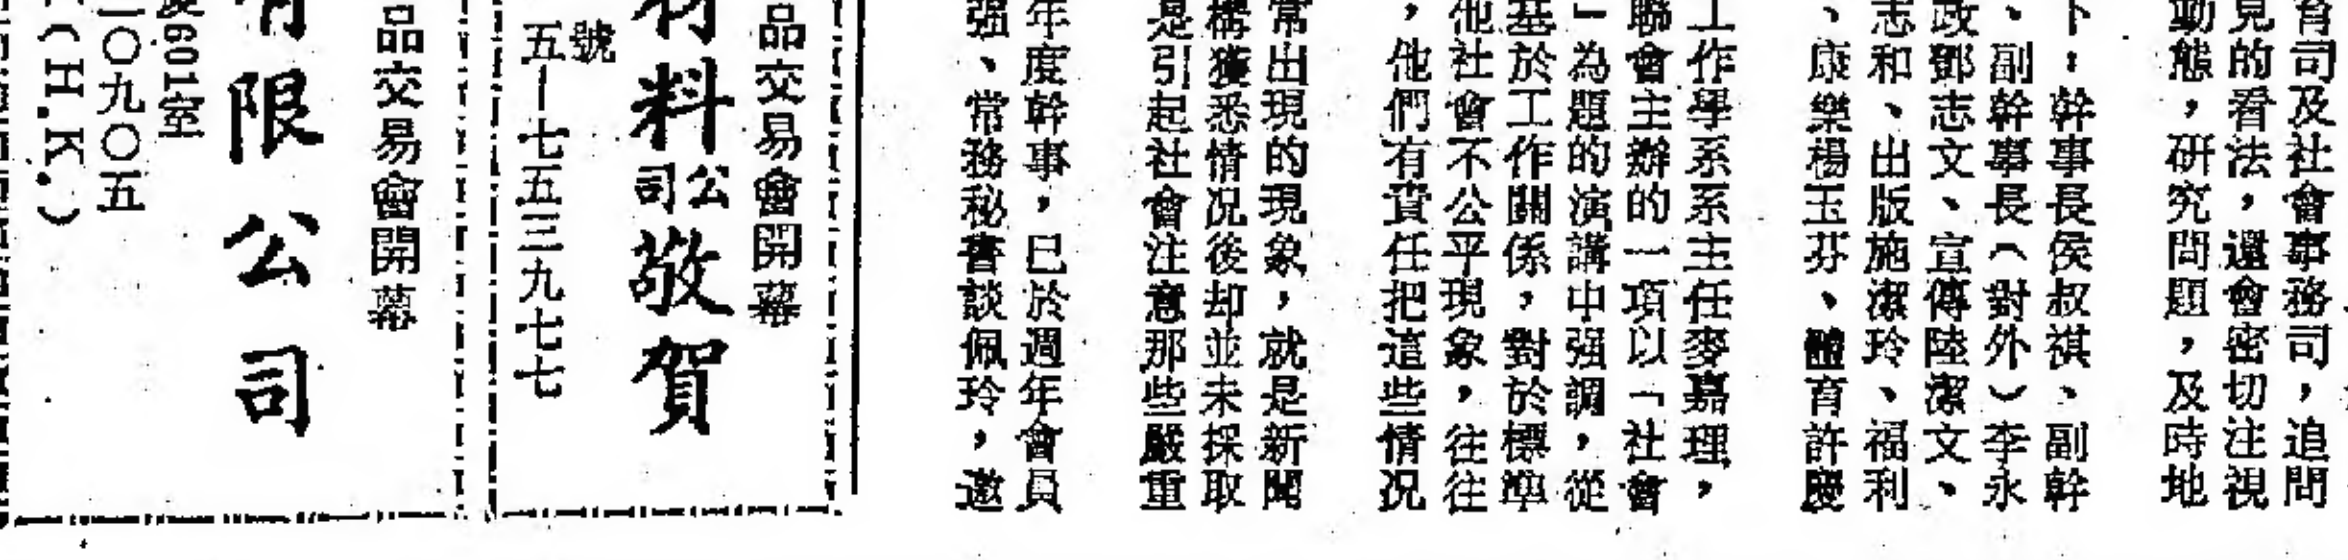 育司及社會事務司，追問
見的看法，還會密切注視
動態，研究問題，及時地
下：幹事長侯叔祺、副幹
、副幹事長（對外）李永
政鄧志文、宣傳陸潔文、
志和、出版施潔玲、福利
、康樂楊玉芬、體育許慶
工作學系系主任麥嘉理，
聯會主辦的一項以「社會
」為題的演講中强調，從
基於工作關係，對於標準
他社會不公平現象，往往
，他們有責任把這些情况
常出現的現象，就是新聞
構獲悉情况後却並未採取
是引起社會注意那些嚴重
年度幹事，已於週年會員
强、常務秘書談佩玲，邀
品交易會開幕
材料公司敬賀
號
五—七五三九七七
品交易會開幕
有限公司
廈601室
一〇九〇五
（H.K.）